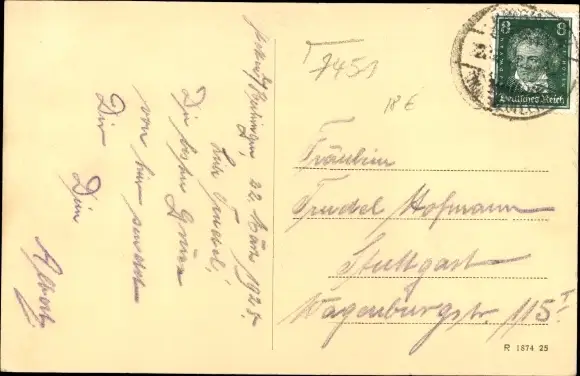 22. März 1928.
Liebe Trudel!
Die besten Grüsse
von hier sendet
Dir Dein
Albert
7451
18 €
8 8
Deutsches Reich
Fräulein
Trudel Hofmann
Stuttgart
Wagenburgstr. 115 I
R 1874 25